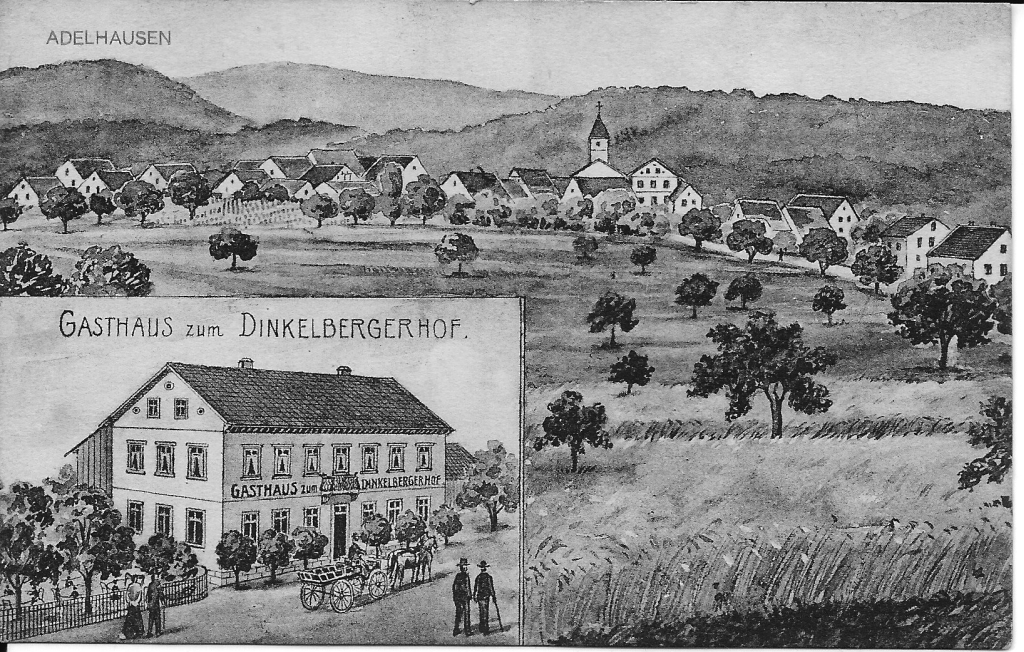 ADELHAUSEN
GASTHAUS zum DINKELBERGERHOF.
GASTHAUS zum DINKELBERGERHOF